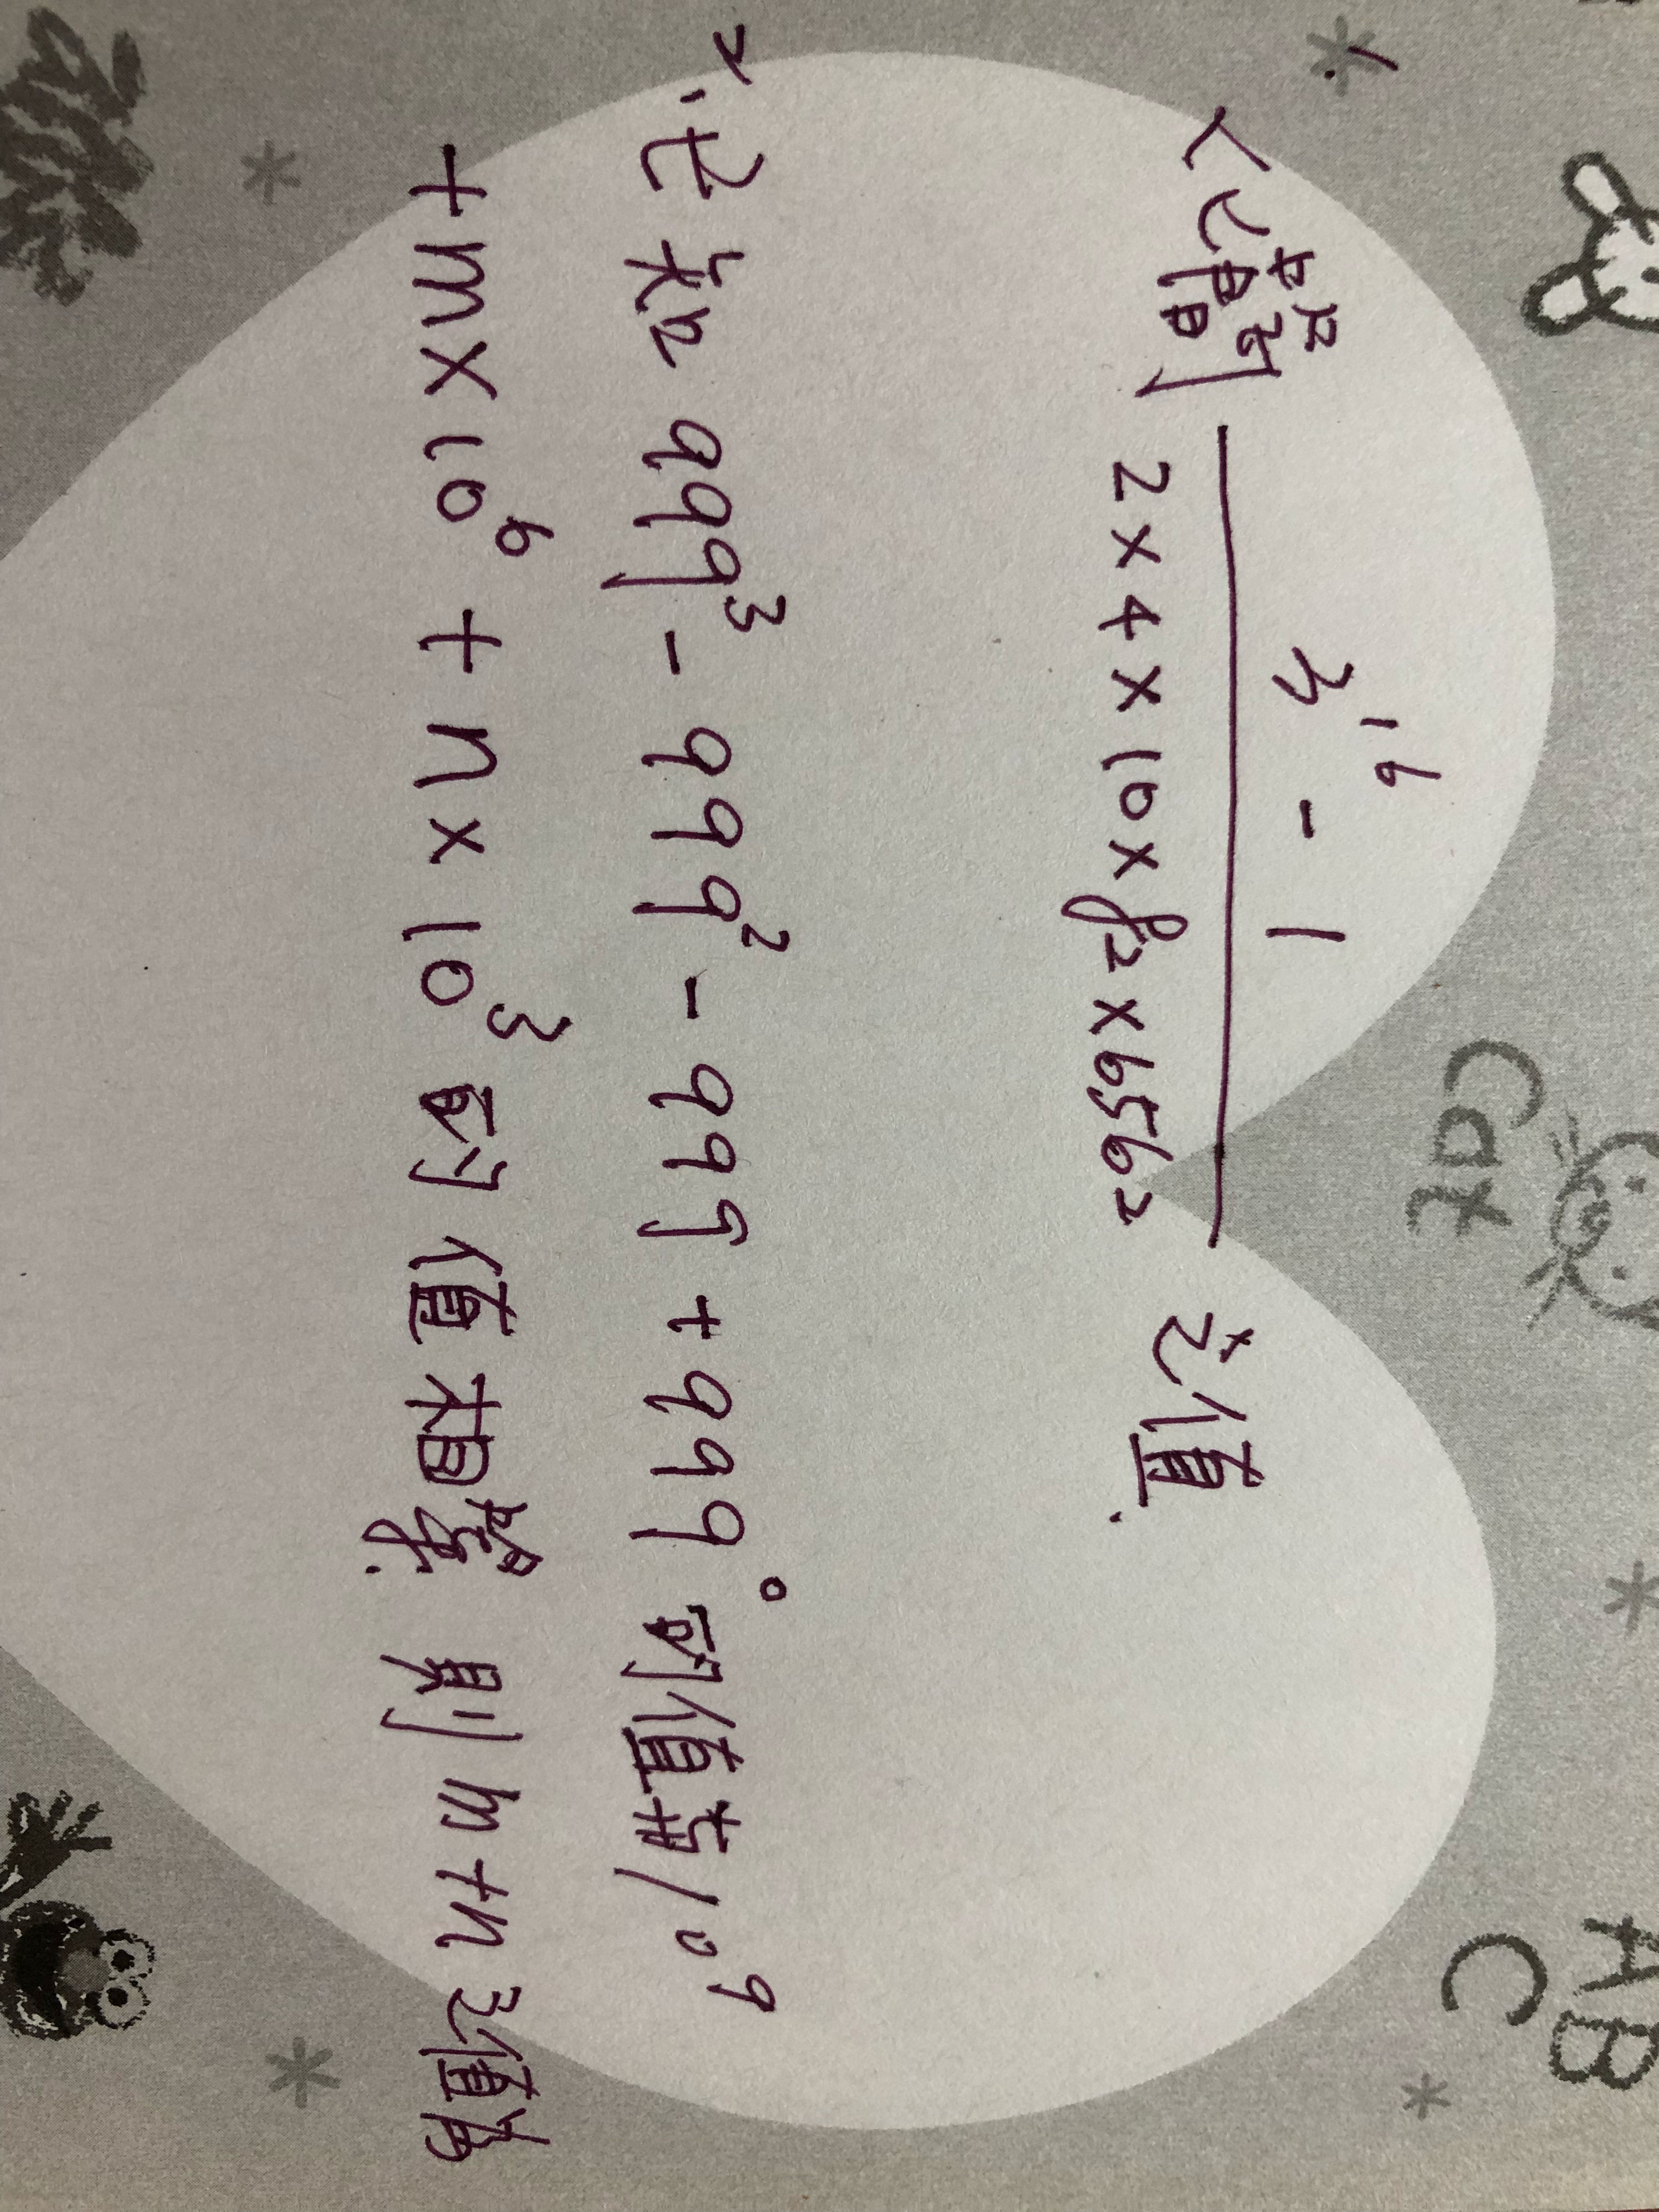 1.
試求 3¹⁶ - 1
2×4×10×82×6562 之值.
2. 已知 999³ - 999² - 999 + 999⁰ 的值與 10⁹
+ m×10⁶ + n×10³ 的值相等. 則 m+n 之值為
Cat
AB
C